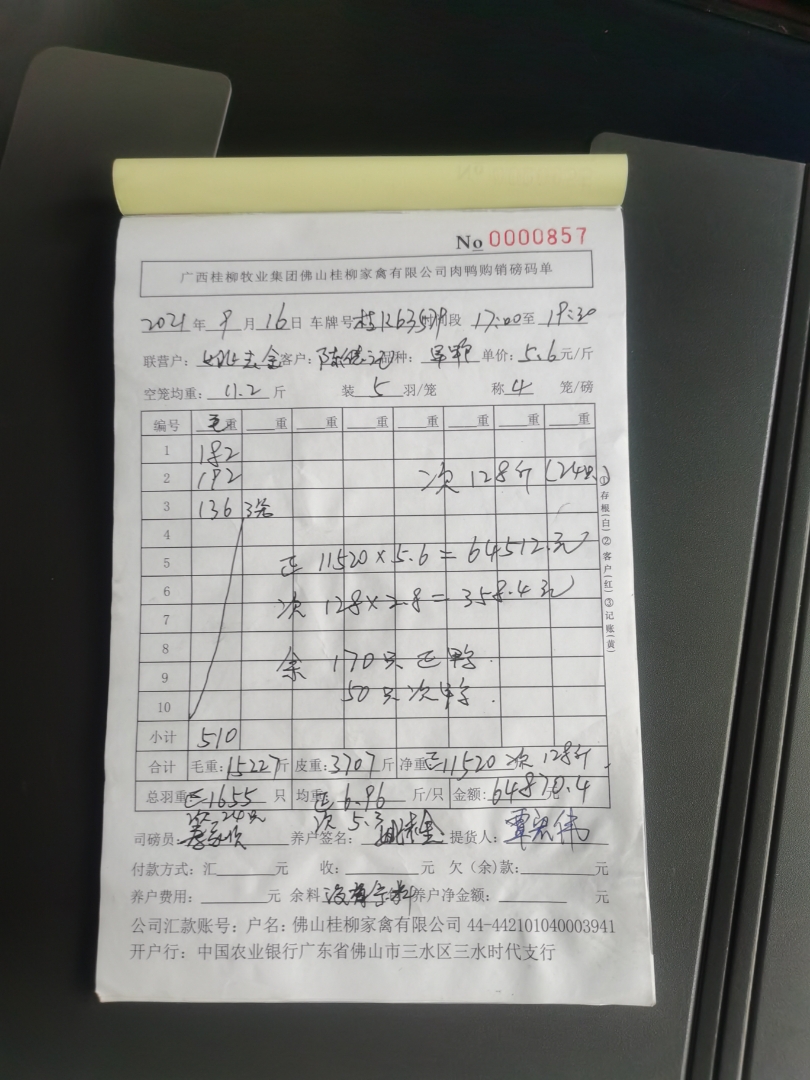 No 0000857
广西桂柳牧业集团佛山桂柳家禽有限公司肉鸭购销磅码单
2021 年 9 月 16 日 车牌号 时间段 17:00 至 19:30
联营户: 客户: 品种: 单价: 5.6 元/斤
空笼均重: 11.2 斤 装 5 羽/笼 称 4 笼/磅
编号 毛重 重 重 重 重 重 重 重
1 182
2 192 次 128斤 (24只)
3 136 3笼
4
5 正 11520×5.6=64512元
6 次 128×2.8=358.4元
7
8 余 170只正鸭.
9 50只次鸭.
10
小计 510
合计 毛重: 15227 斤 皮重: 3707 斤 净重 正11520 次 128斤
总羽重 正1655 只 均重: 正 6.96 斤/只 金额: 64870.4 元
次 24只 次 5.3
司磅员: 养户签名: 提货人: 覃宏伟
付款方式: 汇 元 收: 元 欠(余)款: 元
养户费用: 元 余料 没有余料 养户净金额: 元
公司汇款账号: 户名: 佛山桂柳家禽有限公司 44-442101040003941
开户行: 中国农业银行广东省佛山市三水区三水时代支行
①存根(白)②客户(红)③记账(黄)